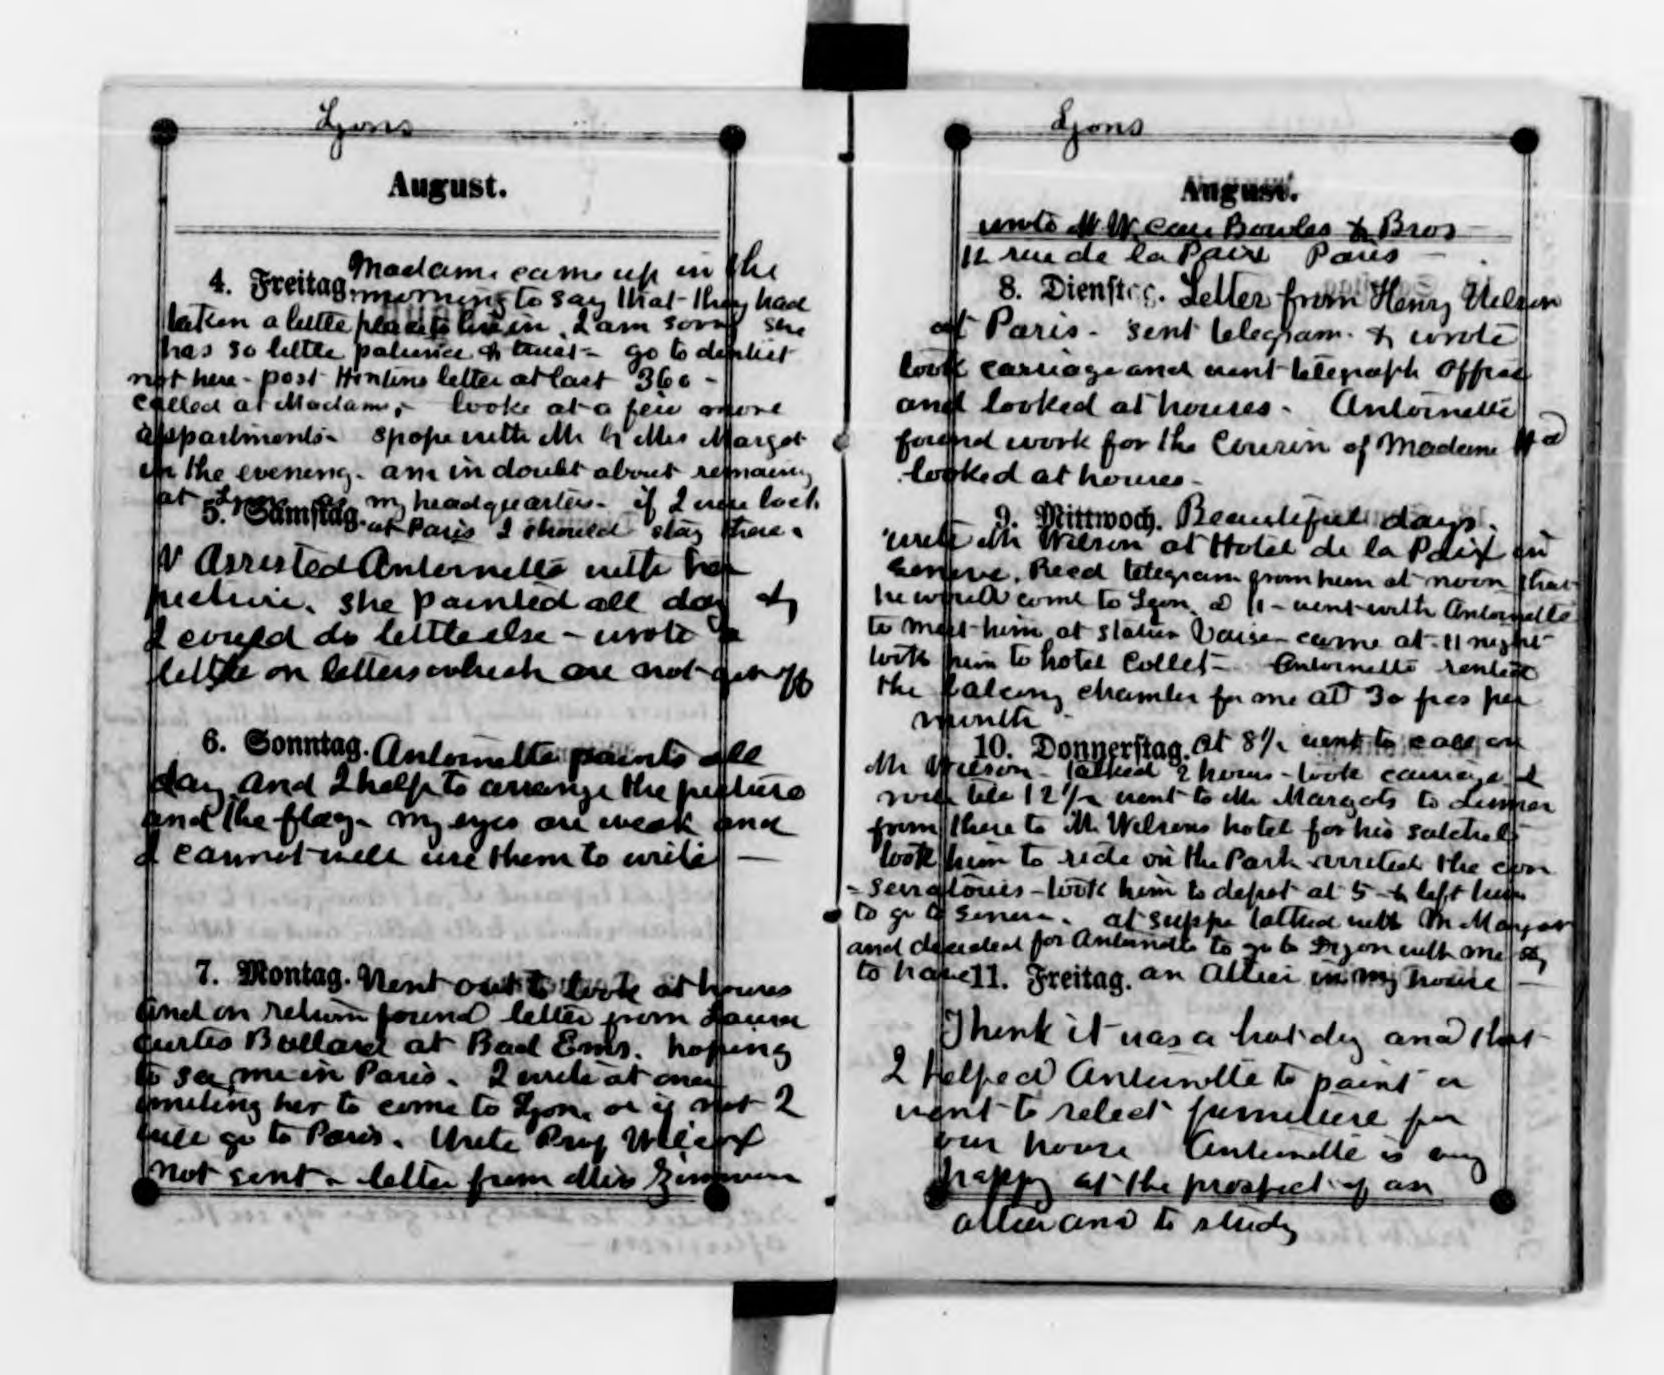 Lyons
August.
4. Freitag. Madame came up in the
morning to say that they had
taken a little place to live in. I am sorry she
has so little patience & trust - go to dentist
not here - post Hintons letter at last 360 -
called at Madame, - looke at a few more
appartments - spope with Mr & Mrs Margot
in the evening. am in doubt about remaing
at Lyons as my headquarters. if I were lock
5. Samstag. at Paris I should stay there.
V Assisted Antoinette with her
picture. She painted all day &
I could do little else - wrote a
little on letters which are not get off
6. Sonntag. Antoinette paints all
day and I help to arrange the picture
and the flag - my eyes are weak and
I cannot well use them to write -
7. Montag. Went out to look at houses
and on return found letter from Laura
Curtis Bullard at Bad Ems. hoping
to see me in Paris. I write at once
inviting her to come to Lyons or if not I
will go to Paris. Write Prof Wilcox
not sent - letter from Miss Zimmern
Lyons
August.
wrote Mr W care Bowles & Bros
12 rue de la Paix Paris -
8. Dienstag. Letter from Henry Wilson
at Paris - sent telegram & wrote
took carriage and went telegraph Office
and looked at houses - Antoinette
found work for the Cousin of Madame Hd
looked at houses -
9. Mittwoch. Beautiful days.
write Mr Wilson at Hotel de la Paix in
Geneve. Recd telegram from him at noon that
he would come to Lyon @ 11 - went with Antoinette
to meet him at station Vaise - came at 11 night
took him to hotel Collet - Antoinette rented
the balcony chamber for me at 30 frcs per
month -
10. Donnerstag. at 8½ went to call on
Mr Wilson - talked 2 hours - took carriage &
rode till 12½ went to Mr Margots to dinner
from there to Mr Wilsons hotel for his satchel
took him to ride on the Park visited the con
-servatories - took him to depot at 5 & left him
to go to Geneva. at suppe talked with Mr Margot
and decided for Antoinette to go to Dijon with me &
to have an Atlier in my house -
11. Freitag.
Think it was a hot day and that
I helped Antoinette to paint or
went to select furniture for
our house Antoinette is very
happy at the prospect of an
atlier and to study